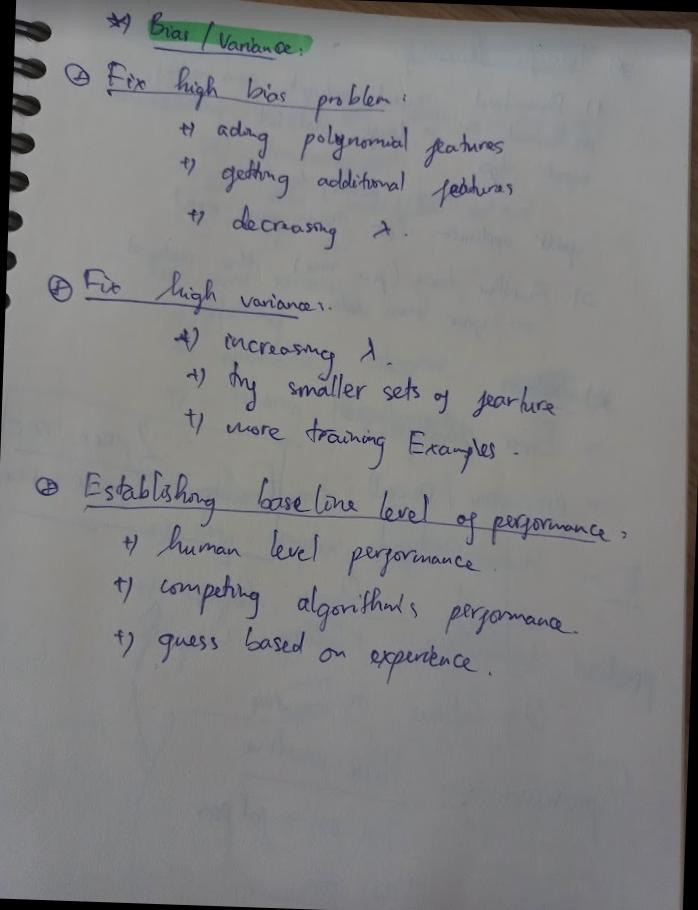 *) Bias / Variance:
Fix high bias problem:
+) ading polynomial features
+) getting additional features
+) decreasing λ.
Fix high variance:
+) increasing λ.
+) try smaller sets of fearture
+) more training Examples.
Establishing baseline level of performance:
+) human level performance
+) competing algorithms performance.
+) guess based on experience.